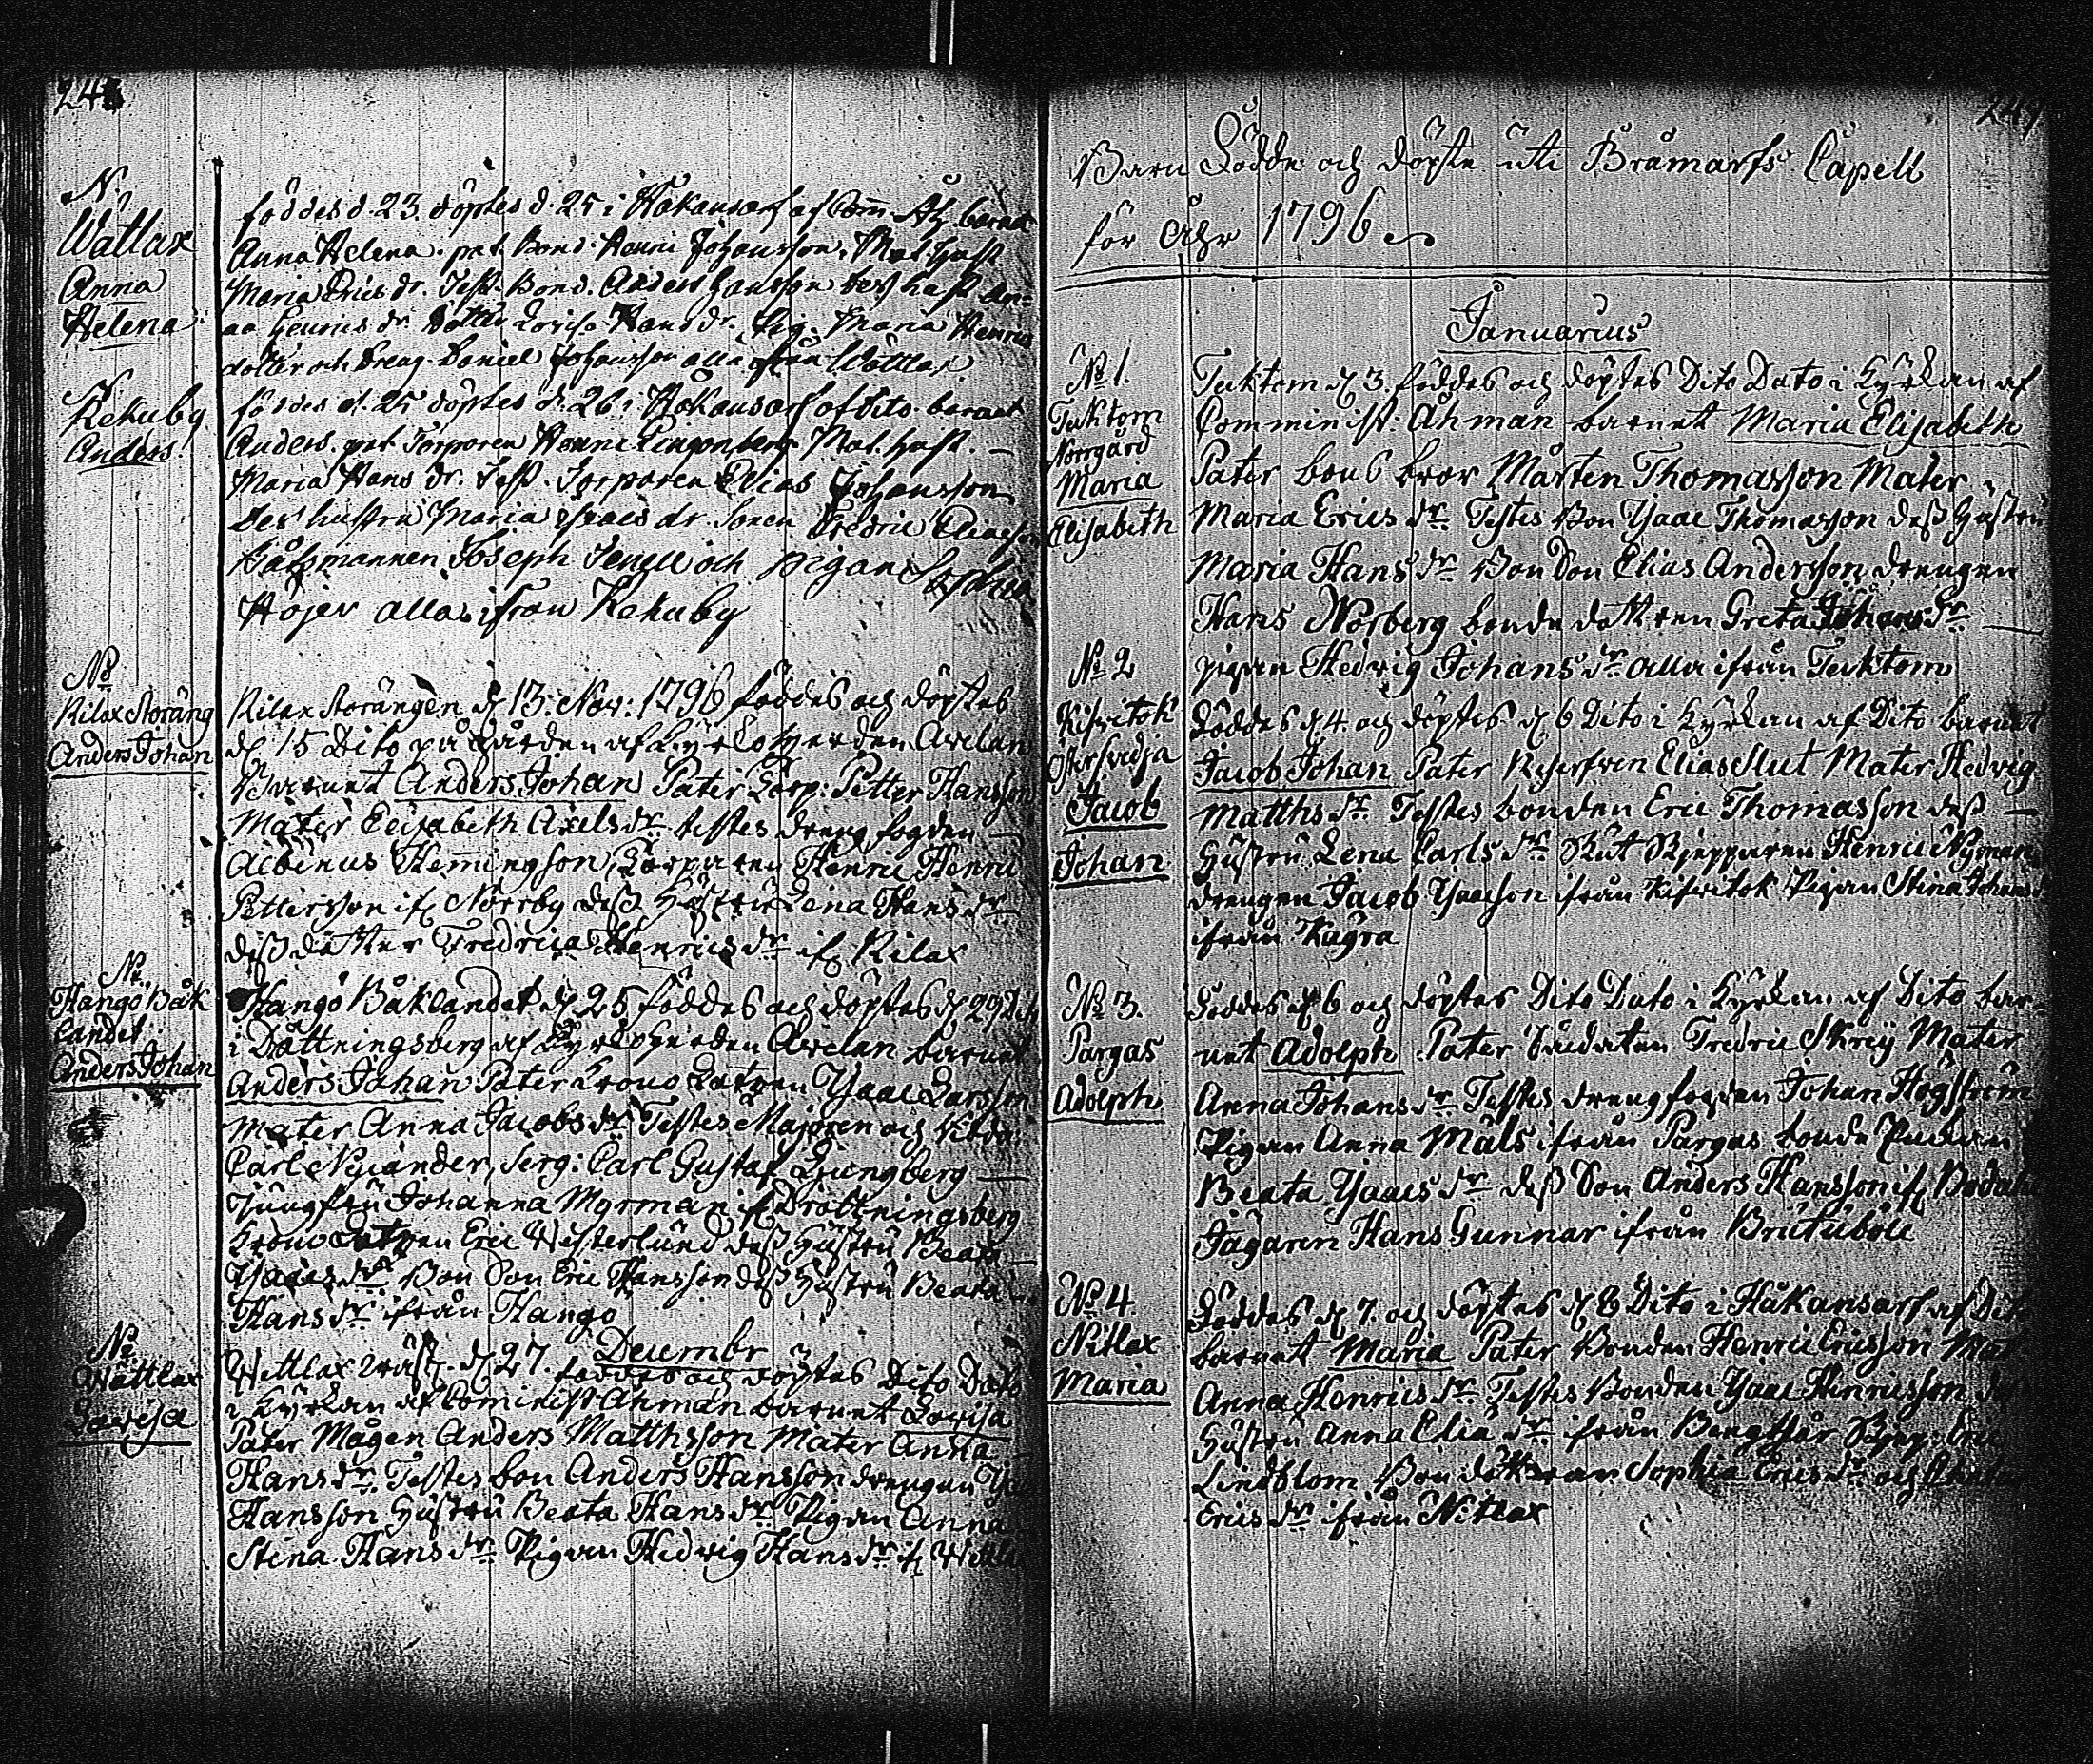 24
N.
Wättlax
Anna
Helena
föddes d. 23. döptes d. 25 i Håkansarf af Com. Åh. barnet
Anna Helena. pat. Bond. Henric Johansson. Mat. Hust.
Maria Erics dr. Test. Bond. Anders Hansson des hust. An-
na Henrics dr. Dotter Lovisa Hans dr. Pig. Maria Henrics
dotter och Dreng. Daniel Johansson alla ifrån Wättlax
N.
Rekuby
Anders
föddes d. 25 döptes d. 26 i Håkansarf af dito barnet
Anders. pat. Torparen Henric Lingonberg Mat. Hust. —
Maria Hans dr. Test. Torparen Elias Johansson
des hustru Maria Isaacs dr. Sonen Fredric Eliasson
Båtzmannen Joseph Senell och Pigan Sophia
Höjer alla ifrån Rekuby
No
Rilax Storäng
Anders Johan
Rilax Storängen d. 13. Nov: 1796 föddes och döptes
d. 15 Dito på Gården af Kyrkoherden Avelan
Barnet Anders Johan Pater Torp: Petter Hansson
Mater Elisabeth Axels dr testes Dreng fogden —
Albinus Hemingson, Torparen Henric Henric
Pettersson if. Norrby dess Hustru Lena Hans dr
dess dotter Fredrica Henrics dr if. Rilax
No
Hangö Båk
landet
Anders Johan
Hangö Båklandet d. 25 föddes och döptes d. 29 Dito
i Dråttningsberg af Kyrkoherden Avelan barnet
Anders Johan Pater Krono Lotzen Isaac Larsson
Mater Anna Jacobs dr Testes Majoren och Ridd:
Carl Nylander, Serg: Carl Gustaf Ljungberg —
Jungfru Johanna Myrman if. Drottningsberg
Krono Lotzen Eric Westerlund dess Hustru Beata —
Isaacs dr Bon Son Eric Hansson dess Hustru Beata
Hans dr ifrån Hangö
Decembr
No
Wättlax
Lovisa
Wettlax Wäst. d. 27. föddes och döptes Dito Dato
i Kyrkan af Cominist Åhman barnet Lovisa
Pater Mågen Anders Matthsson Mater Anna
Hans dr. Testes bon Anders Hansson drengen
Hansson Hustru Beata Hans dr Pigan Anna
Stina Hans dr Pigan Hedvig Hans dr if. Wettlax
249
Barn Födde och döpte uti Bråmarfs Capell
för Åhr 1796
Januarius
No 1.
Tecktom
Norrgård
Maria
Elisabeth
Tecktom d. 3. föddes och döptes Dito Dato i Kyrkan af
Comminist: Åhman barnet Maria Elisabeth
Pater bons bror Mårten Thomasson Mater
Maria Erics dr Testes Bon Isaac Thomasson dess Hustru
Maria Hans dr Bon Son Elias Andersson drengen
Hans Norberg bonde dottren Greta Johans dr —
pigan Hedvig Johans dr alla ifrån Tecktom
No 2
Kifvitok
Östersvedja
Jacob
Johan
Föddes d. 4. och döptes d. 6 Dito i Kyrkan af Dito barnet
Jacob Johan Pater Reserfven Elias Slut Mater Hedvig
Matths dr Testes bonden Eric Thomasson dess —
Hustru Lena Carls dr Skut Skepparen Henric Nyman
drengen Jacob Isacsson ifrån Kifvitok Pigan Stina Johans dr
ifrån Kagra
No 3.
Pargas
Adolph
Föddes d. 6 och döptes Dito Dato i Kyrkan af Dito bar-
net Adolph Pater Soldaten Fredric Skrij Mater
Anna Johans dr Testes drengfogden Johan Högström
Pigan Anna Måls ifrån Pargas bonde Enkan
Beata Isaacs dr dess Son Anders Hansson if.
Jägaren Hans Gunnar ifrån Brutuböle
No 4
Nitlax
Maria
Föddes d. 7. och döptes d. 8 Dito i Håkansarf af Dito
barnet Maria Pater Bonden Henric Ericsson Mat
Anna Henrics dr Testes Bonden Isaac Henricsson
Hustru Anna Elia dr ifrån Bengtsår
Lindblom Bon döttrar Sophia Erics dr och
Erics dr ifrån Nitlax